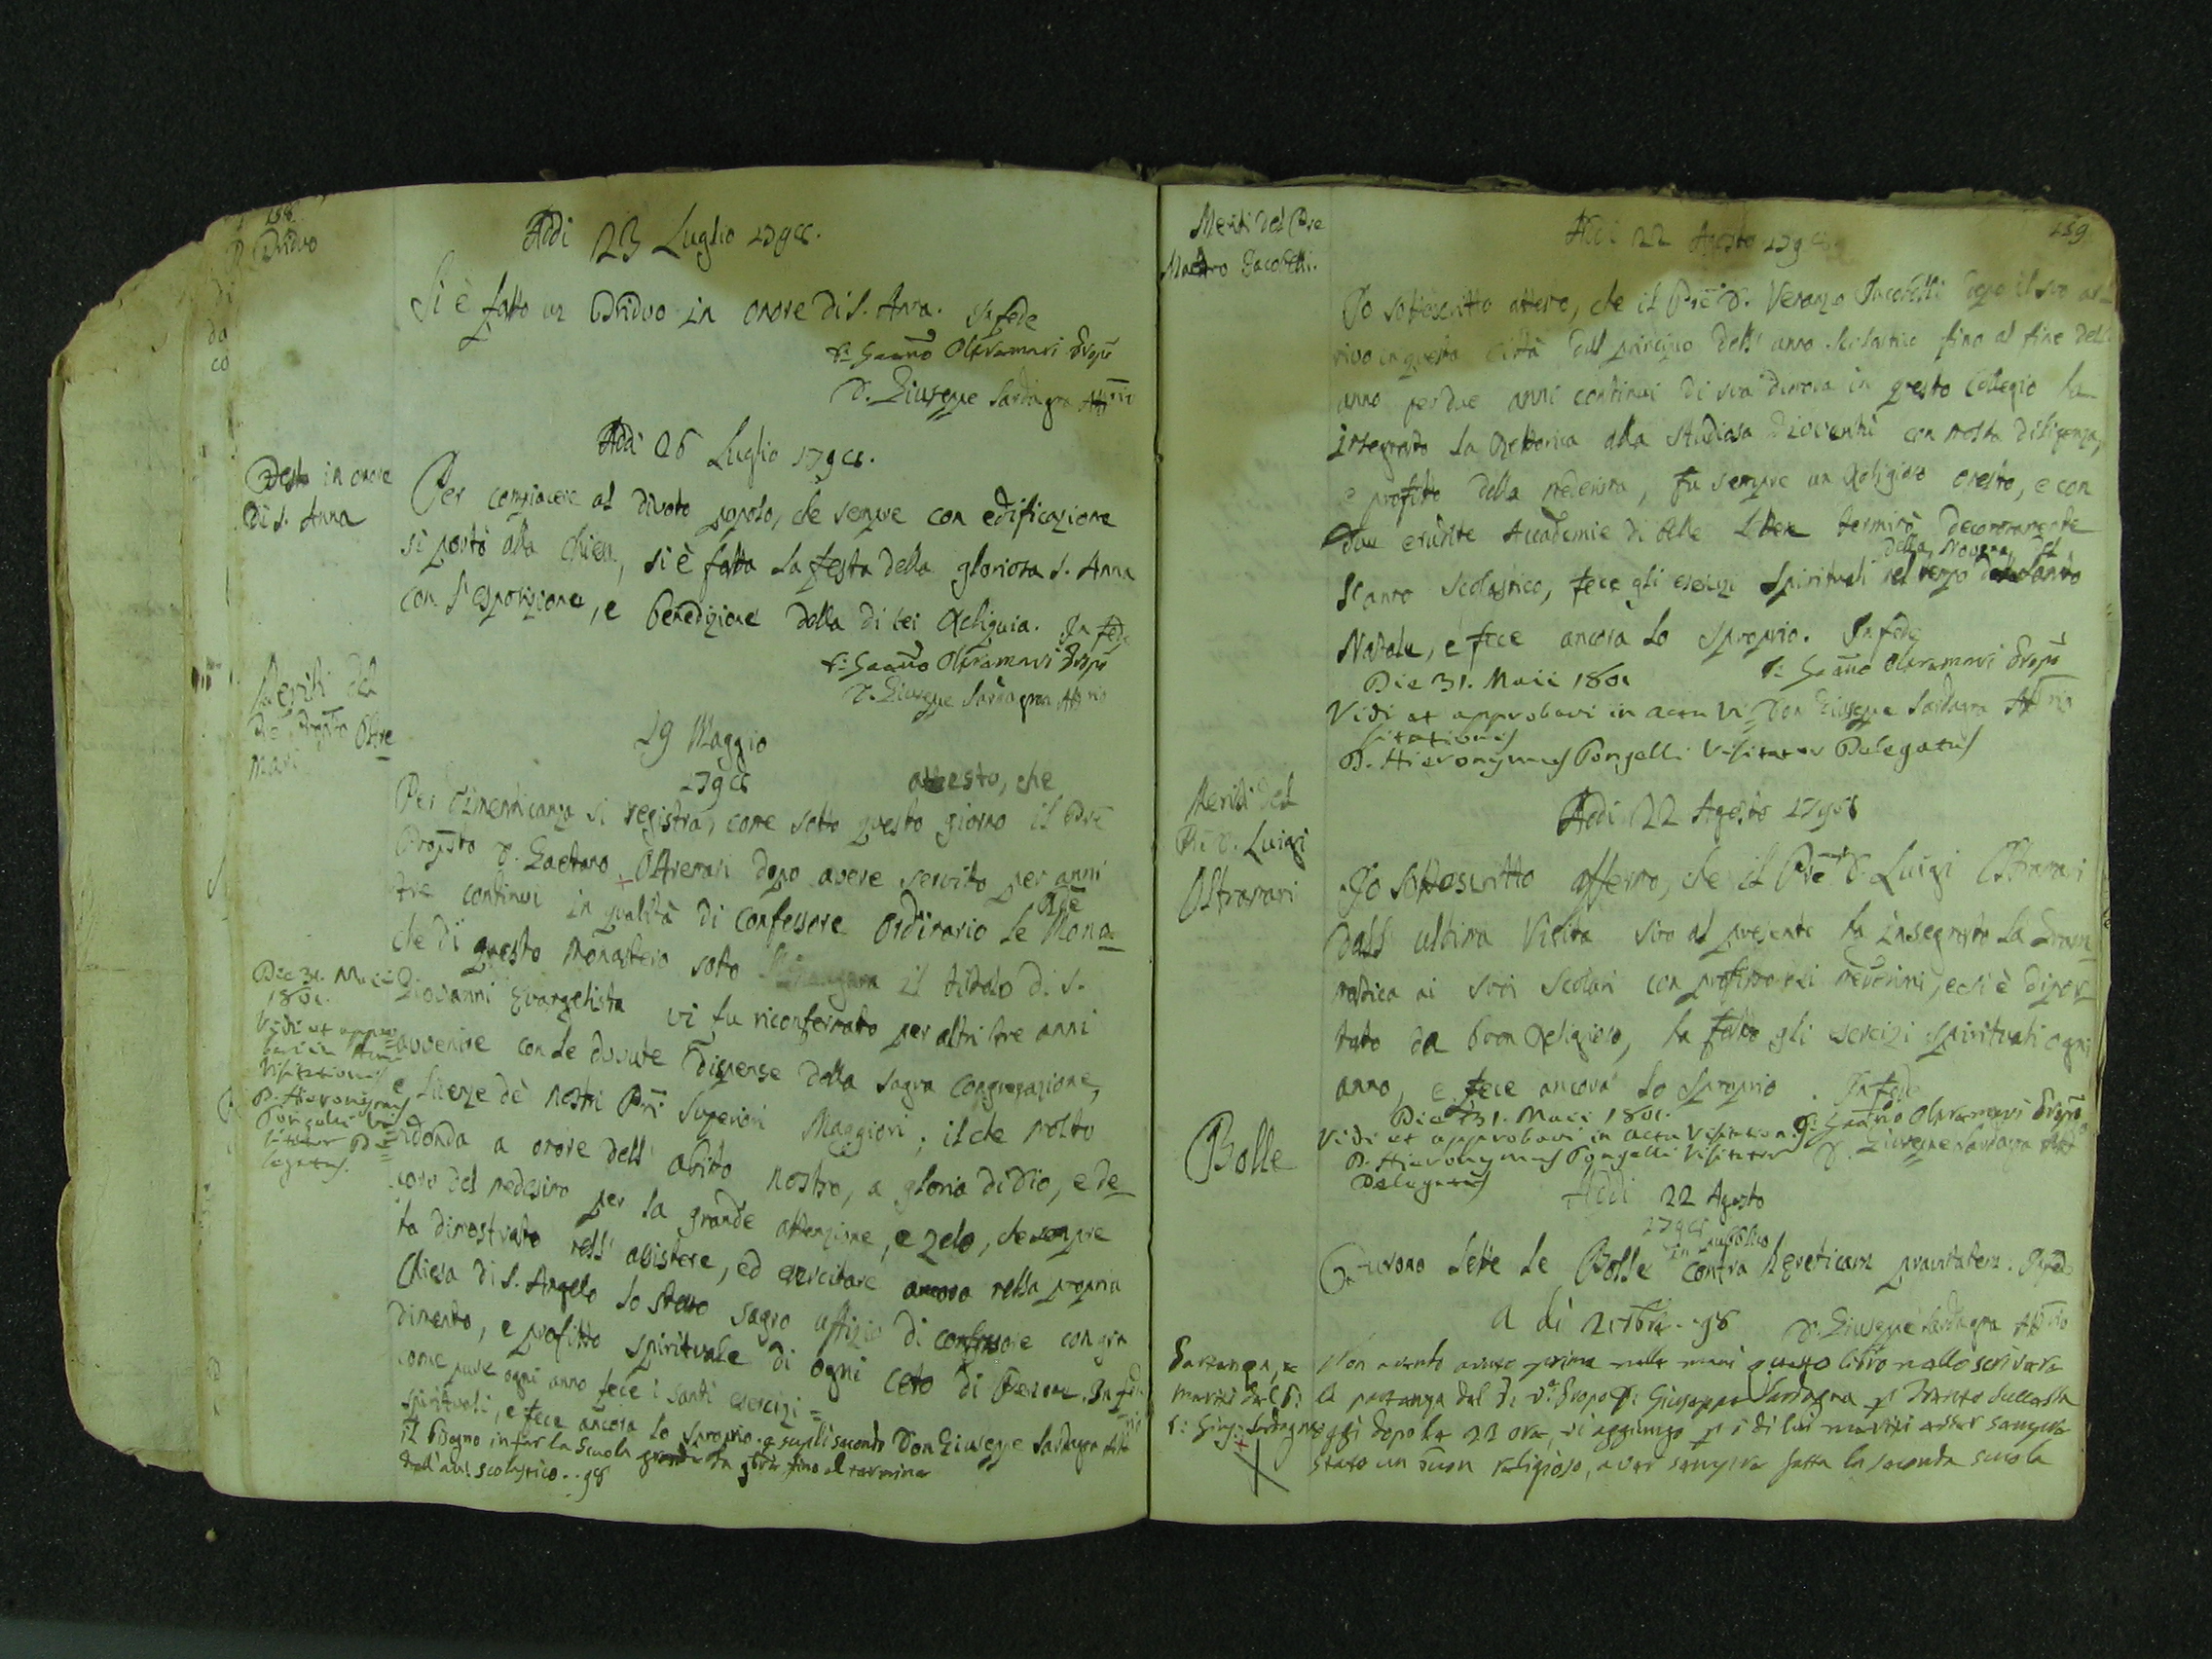 158
Triduo
Addi 23 Luglio 1798.
Si è fatto un Triduo in onore di S. Anna. In fede
D. Gaetano Oltremari Prep.to
D. Giuseppe Sardagna Att.rio
Addi 26 Luglio 1798.
Festa in onore
di S. Anna
Per compiacere al divoto popolo, che sempre con edificazione
si portò alla chiesa, si è fatta la festa della gloriosa S. Anna
con l'esposizione, e benedizione della di lei Reliquia. In fede
D. Gaetano Oltremari Prep.to
D. Giuseppe Sardagna Att.rio
Meriti del
Pre Prep.to Oltre
mari
19 Maggio
1798
attesto, che
Per dimenticanza si registra, come sotto questo giorno il Pre
Prop.sto D. Gaetano Oltremari dopo avere servito per anni
tre continui in qualità di Confessore Ordinario le Mona=
che di questo Monastero sotto il titolo di S.
Giovanni Evangelista vi fu riconfermato per altri tre anni
avvenire con le dovute dispense della sagra congregazione,
e licenze de' nostri P.ri Superiori Maggiori; il che molto
ridonda a onore dell' abito nostro, a gloria di Dio, e de=
coro del medesimo per la grande attenzione, e zelo, che sempre
ha dimostrato nell' assistere, ed esercitare ancora nella propria
Chiesa di S. Angelo lo stesso sagro uffizio di confessore con gra
dimento, e profitto spirituale di ogni ceto di Persone. In fede
come pure ogni anno fece i santi esercizi=
spirituali, e fece ancora lo sproprio. e suplì secondo Don Giuseppe Sardagna Att.rio
il bisogno in far la Scuola grande da fino al termine
dell'an. scolastico. 98
Die 31. Maii
1801.
Vidi et appro=
bavi in Actu
Visitationis
D. Hieronymus
Pongelli Vi=
sitator De=
legatus.
159
Meriti del Pre
Maestro Jacobelli.
Addi 22 Agosto 1798
Io sottoscritto attesto, che il Pre D. Veranzo Jacobelli dopo il suo ar=
rivo in questa città dall principio dell' anno scolastico fino al fine dell'
anno per due anni continui di sua dimora in questo Collegio ha
insegnato la Rettorica alla studiosa Gioventù con molta diligenza,
e profitto della medesima, fu sempre un Religioso onesto, e con
due erudite Accademie di belle Lettere terminò decorosamente
l'anno scolastico, fece gli esercizi Spirituali nel tempo della Novena del Santo
Natale, e fece ancora lo sproprio. In fede
Die 31. Maii 1801
D. Gaetano Oltremari Prep.to
Vidi et approbavi in actu Vi= Don Giuseppe Sardagna Att.rio
sitationis
D. Hieronymus Pongelli Visitator Delegatus
Meriti del
P.re D. Luigi
Oltramari
Addi 22 Agosto 1798
Io sottoscritto affermo, che il Pre D. Luigi Oltramari
dall' ultima Visita sino al presente ha insegnato la Gram
matica ai suoi scolari con profitto dei medesimi, e si è dipor
tato da buon Religioso, ha fatto gli esercizi spirituali ogni
anno, e fece ancora lo sproprio. In fede
Die 31. Maii 1801.
D. Gaetano Oltremari Prep.to
Vidi et approbavi in actu Visitationis D. Giuseppe Sardagna Att.rio
D. Hieronymus Pongelli Visitator
Delegatus
Bolle
Addi 22 Agosto
1798
Furono lette le Bolle in pubblico contra hereticam pravitatem. In fede
D. Giuseppe Sardagna Att.rio
a dì 2 98
Partenza, e
meriti del P.
D. Gius. Sardagna
Non avendo avuto prima nelle mani questo libro nello scrivere
la partenza del P. D. Giuseppe Sardagna
oggi dopo le 22 ore, vi aggiungo i di lui meriti esser sempre
stato un buon religioso, aver sempre fatta la seconda scuola